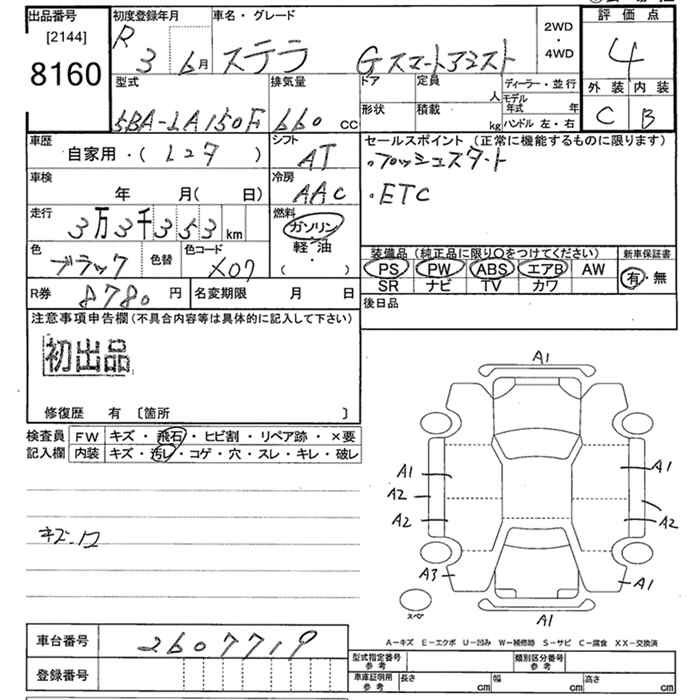 出品番号
[2144]
8160
初度登録年月
R 3 6月
車名・グレード
ステラ Gスマートアシスト
2WD
・
4WD
評価点
4
外装 内装
C B
型式
5BA-LA150F
排気量
660 cc
ドア 定員 人
形状 積載 kg
ディーラー・並行
モデル年式 年
ハンドル 左・右
車歴
自家用・( レンタ )
シフト
AT
車検
年 月( 日)
冷房
AAC
走行
3万3千353km
燃料
ガソリン
軽・油
( ・ )
色
ブラック
色替
色コード
X07
R券 8780円
名変期限 月 日
セールスポイント (正常に機能するものに限ります)
・プッシュスタート
・ETC
装備品(純正品に限り○をつけてください)
PS PW ABS エアB AW
SR ナビ TV カワ
新車保証書
有・無
後日品
注意事項申告欄(不具合内容等は具体的に記入して下さい)
初出品
修復歴 有 〔箇所 〕
検査員記入欄
FW キズ・飛石・ヒビ割・リペア跡・×要
内装 キズ・汚レ・コゲ・穴・スレ・キレ・破レ
A1
A1 A1
A2 A2
A2 A2
A3 A1
スペア
A1
A-キズ E-エクボ U-凹み W-補修跡 S-サビ C-腐食 XX-交換済
車台番号 2607719
登録番号
型式指定番号 参考
類別区分番号 参考
車庫証明用 参考
長さ cm 幅 cm 高さ cm